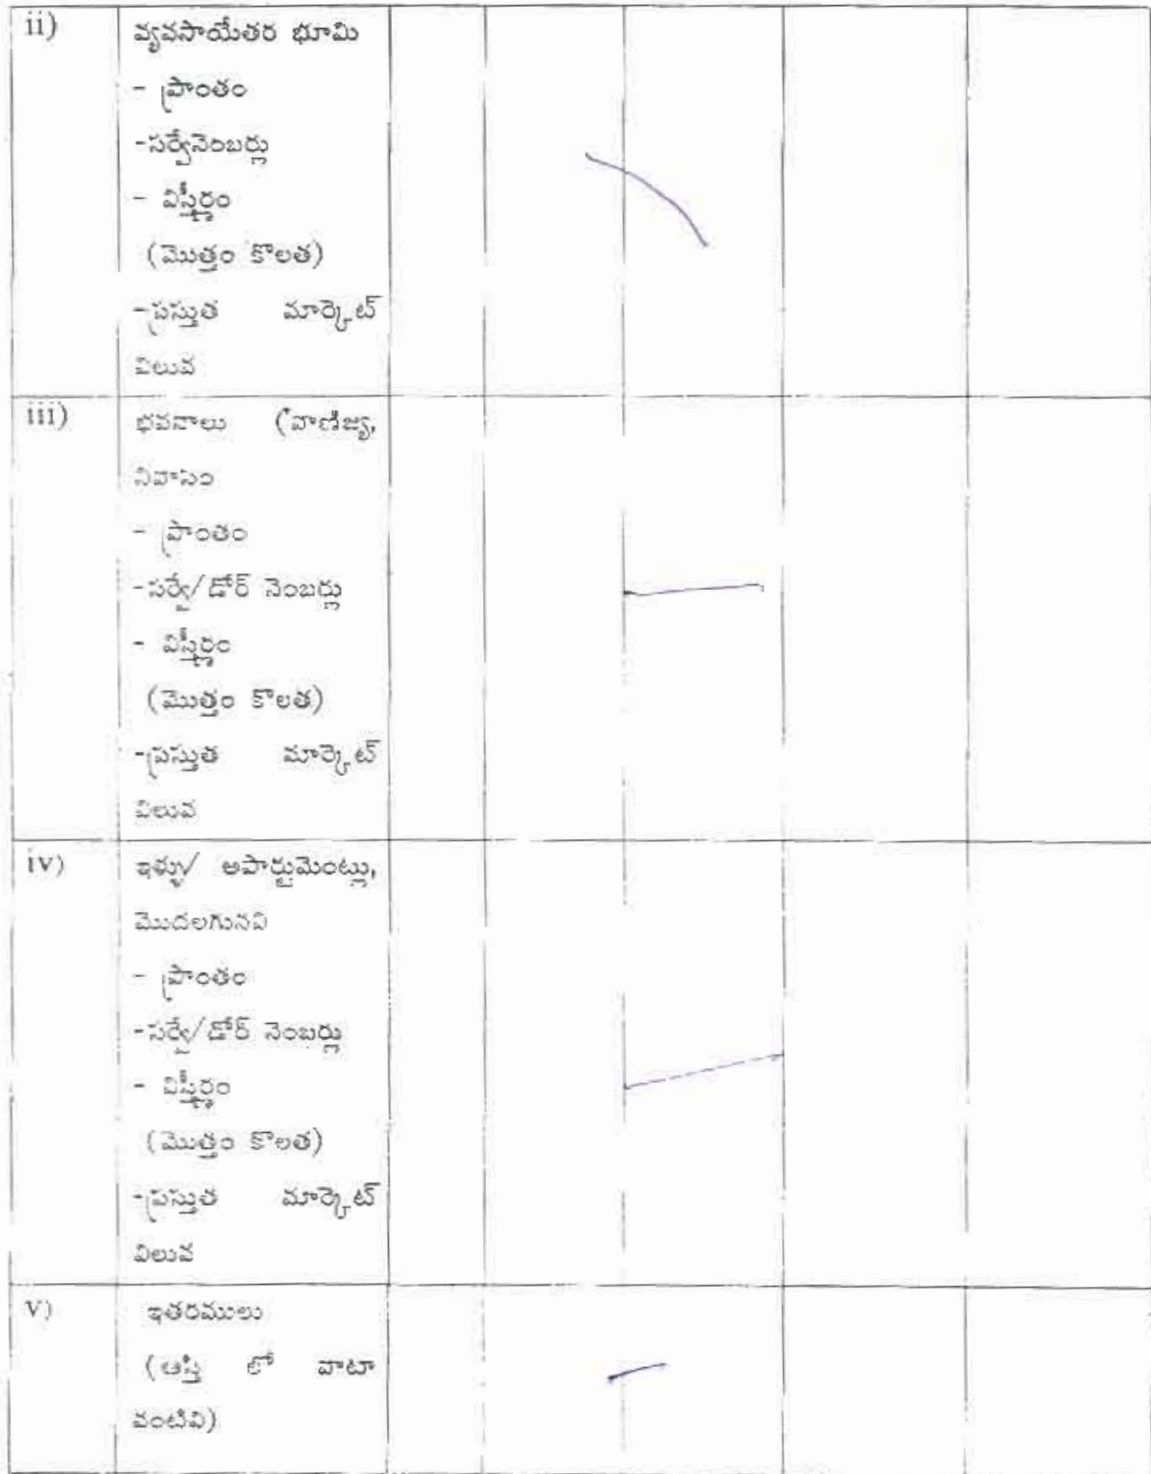 ii) వ్యవసాయేతర భూమి
- ప్రాంతం
-సర్వేనెంబర్లు
- విస్తీర్ణం
(మొత్తం కొలత)
-ప్రస్తుత మార్కెట్
విలువ
iii) భవనాలు (వాణిజ్య,
నివాసం
- ప్రాంతం
-సర్వే/డోర్ నెంబర్లు
- విస్తీర్ణం
(మొత్తం కొలత)
-ప్రస్తుత మార్కెట్
విలువ
iv) ఇళ్ళు/ అపార్టుమెంట్లు,
మొదలగునవి
- ప్రాంతం
-సర్వే/డోర్ నెంబర్లు
- విస్తీర్ణం
(మొత్తం కొలత)
-ప్రస్తుత మార్కెట్
విలువ
v) ఇతరములు
(ఆస్తి లో వాటా
వంటివి)